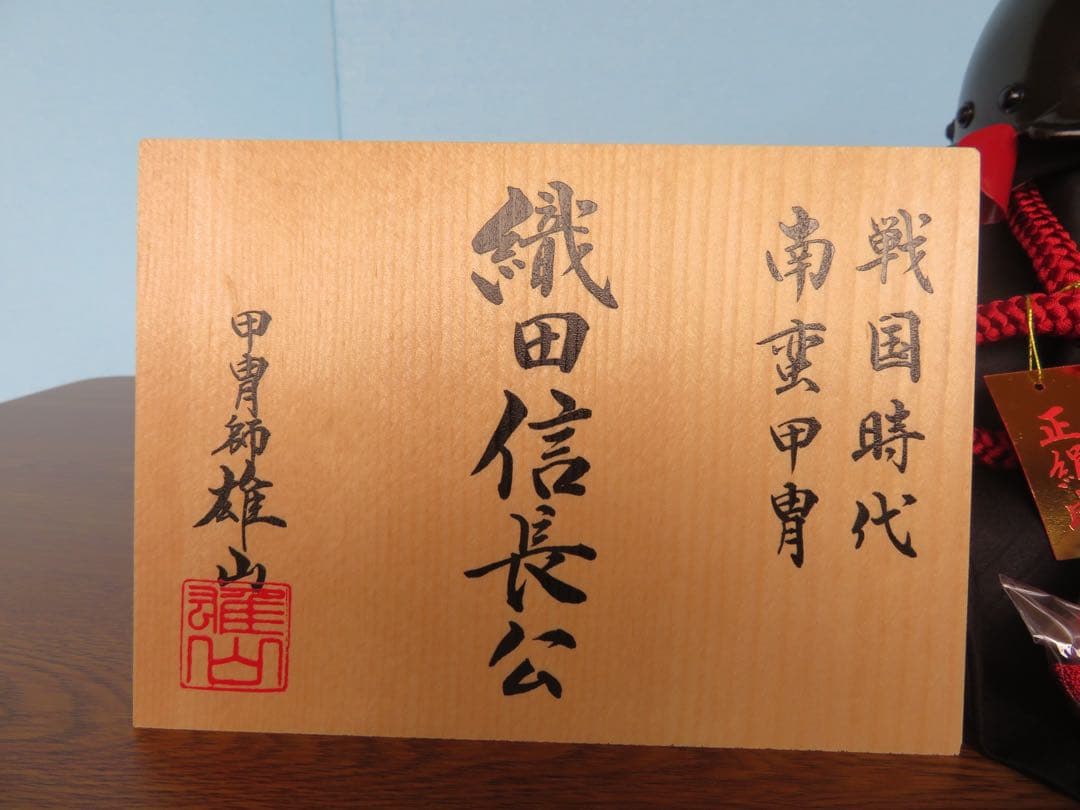 戦国時代
南蛮甲冑
織田信長公
甲冑師雄山
雄山
正絹